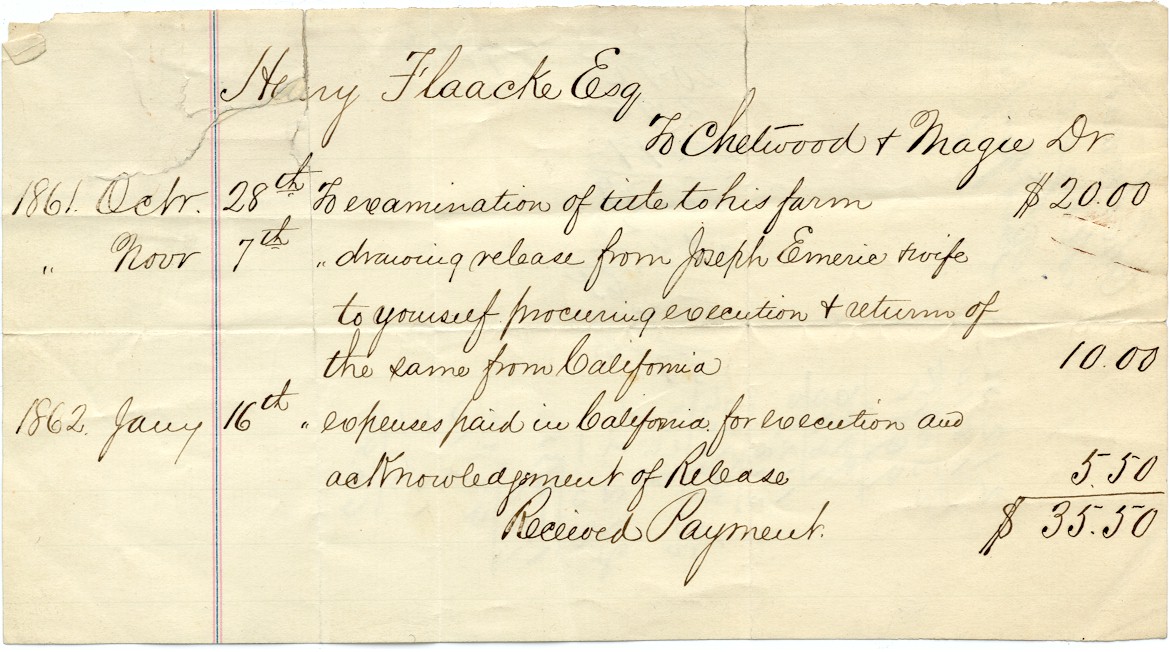 Henry Flaacke Esq
To Chetwood & Magie Dr
1861. Octr. 28th To examination of title to his farm $20.00
„ Novr 7th „ drawing release from Joseph Emerie & wife
to yourself procuring execution & return of
the same from California 10.00
1862. Jany 16th „ expenses paid in California for execution and
acknowledgment of Release 5.50
$ 35.50
Received Payment.